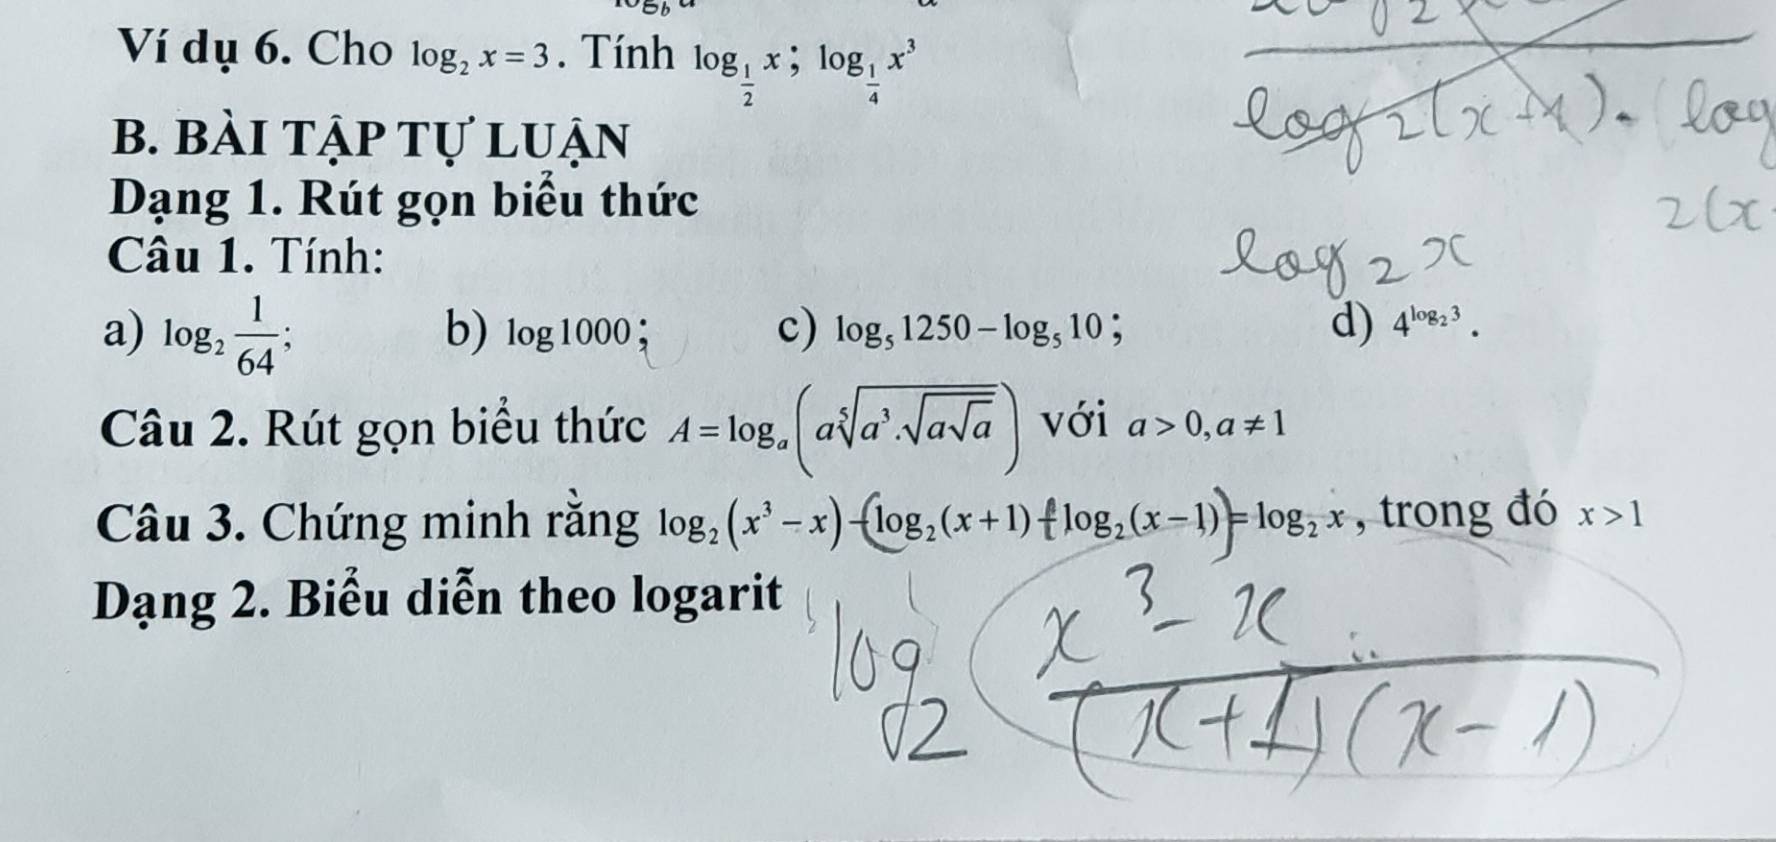 Ví dụ 6. Cho log₂ x = 3. Tính log_{1/2} x; log_{1/4} x³
B. BÀI TẬP TỰ LUẬN
Dạng 1. Rút gọn biểu thức
Câu 1. Tính:
a) log₂ 1/64; b) log1000; c) log₅ 1250 – log₅ 10; d) 4^{log₂ 3}.
Câu 2. Rút gọn biểu thức A = log_a (a⁵√(a³.√(a√a))) với a > 0, a ≠ 1
Câu 3. Chứng minh rằng log₂(x³ – x) – (log₂(x+1) + log₂(x–1)) = log₂ x, trong đó x > 1
Dạng 2. Biểu diễn theo logarit
log₂(x+1).(log
2(x
log₂ x
log₂ (x³ - x)/((x+1)(x-1))